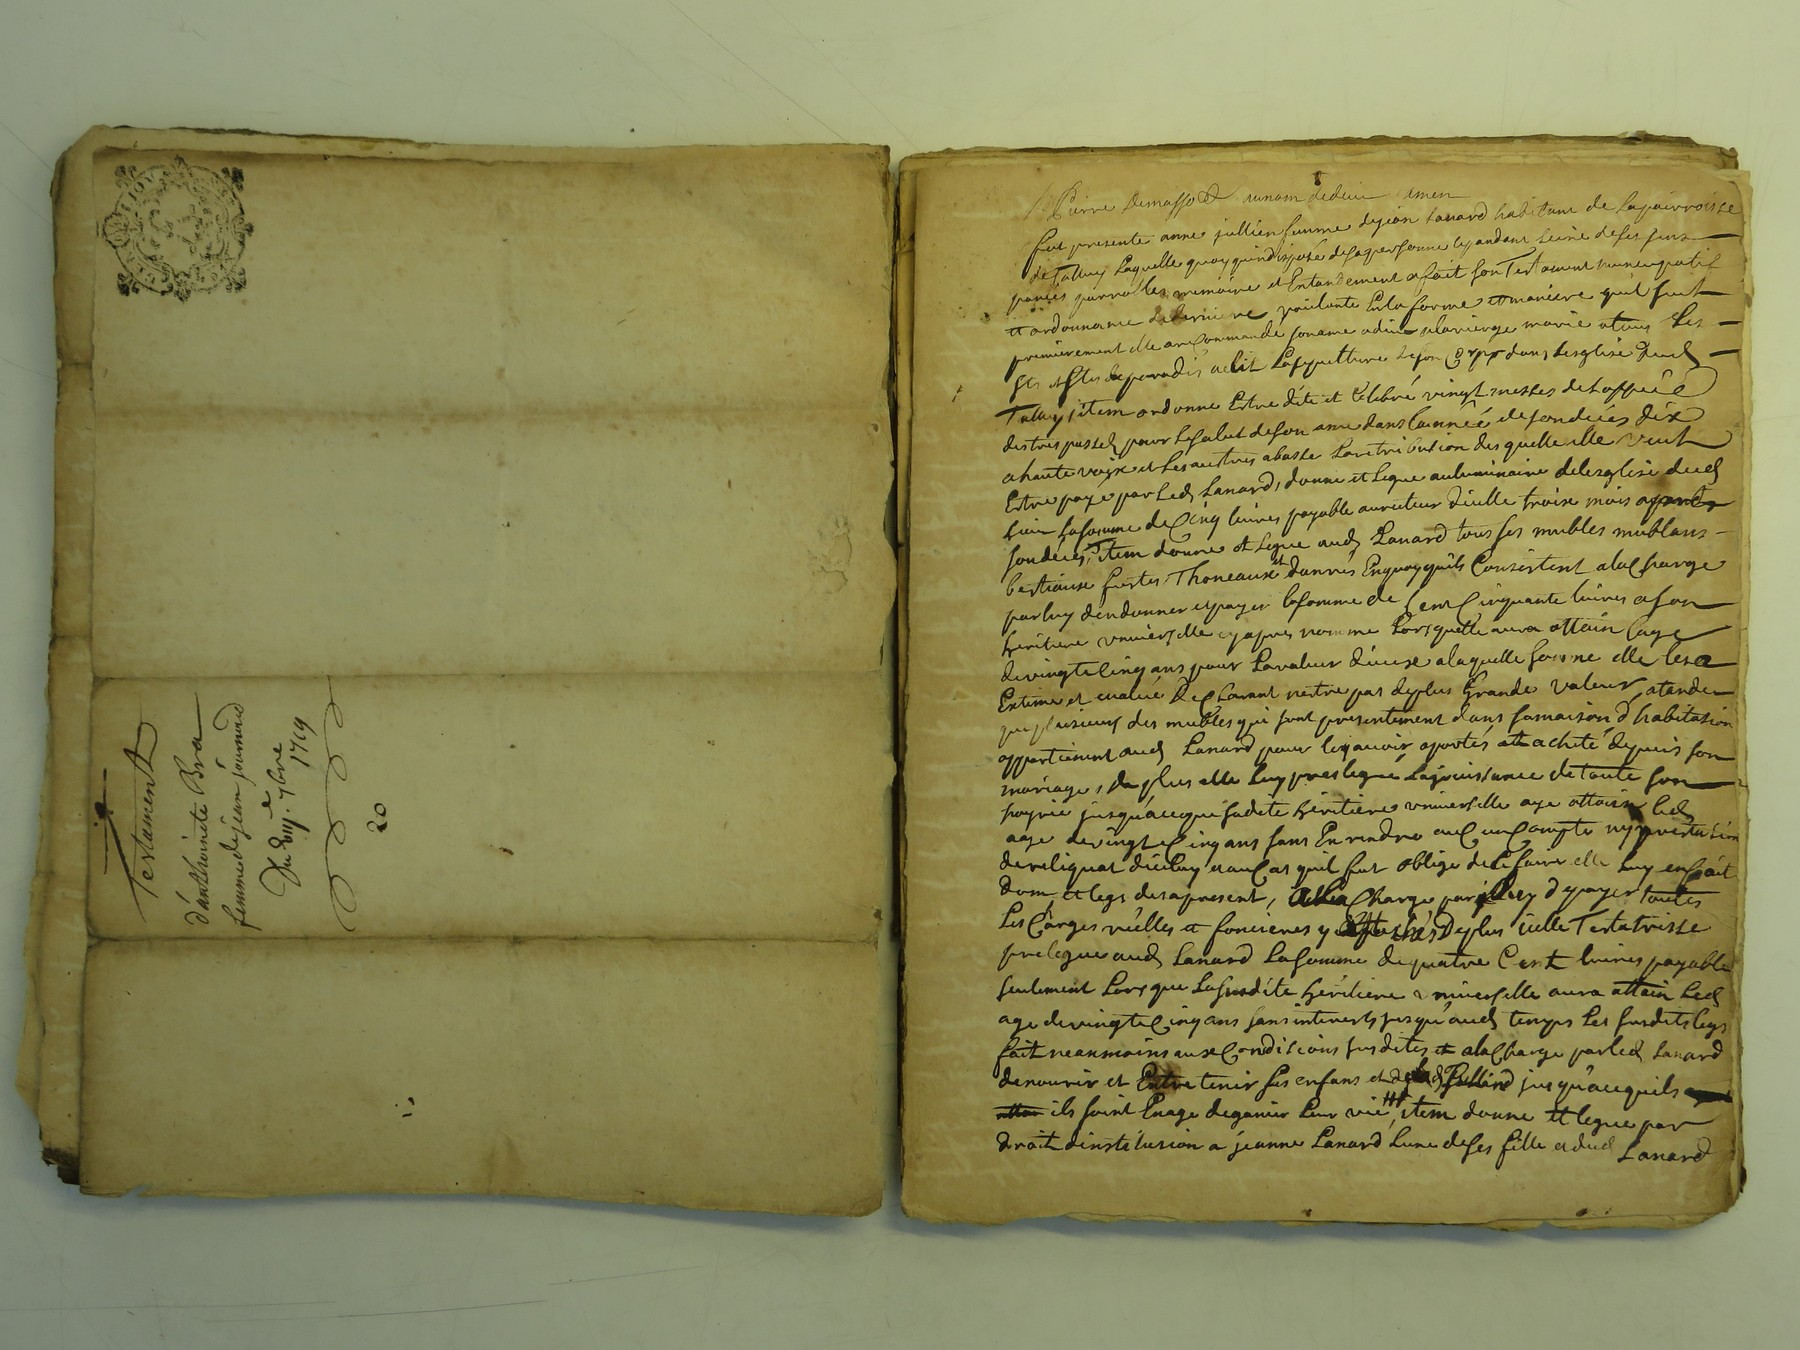 Testament
d'anthoinete Bra
femme de jean journoud
Du 7bre 1719
20
Pierre Demasso amen
fut presente anne jullien femme de jean Lanard habitant de la parroisse
de Talluy Laquelle quoy quindisposé de sa personne cependant seine de ses sens
parolles memoire et Entandement a fait son Testament nuncupatif
et ordonnance de derniere volonté En la forme et maniere quil suit
premierement elle a recommande son ame a dieu a la vierge marie a tous les
Sts et Stes de paradis a elit La sepulture de son Corps dans Lesglise dud
Talluy, item ordonne Estre dite et Célébré vingt messes de Loffice
des trespassés pour Le salut de son ame dans Lannéé de son deces dix
a haute voix et Les austres a basse La retribution des quelle elle veut
Estre payé par Led Lanard, donne et Legue au luminaire de lesglise dud
Lieu La somme de Cinq livres payable au recteur dicelle troix mois apres
son deces, Item donne et Legue aud Lanard tous ses mubles mublans
bestiaux futes Thoneaux et danrés En quoy quils Consistent a la Charge
par luy den donner et payer la somme de Cent Cinquante livres a son
héritiere universelle cy apres nommé Lors quelle aura attain lage
de vingt Cinq ans pour La valeur diceux a laquelle somme elle les a
Estimé et evalué declarant nestre pas de plus Grande valeur, atandu
que plusieurs des mubles qui sont presentement dans sa maison d'habitation
appartienent aud Lanard pour les avoir aportés et acheté depuis son
mariage, de plus elle luy preslegue La jouissance de toute son
hoyrié jusqu'a ce que sadite héritiere universelle aye attain led
age de vingt Cinq ans sans En rendre aucun Compte ny prestation
de reliquat dicelluy et au Cas quil fut obligé de le faire elle luy en fait
don et legs des a present, a la Charge par luy d'y payer toutes
Les Carges réelles et foncieres y De plus icelle Testatrisse
prelegue aud Lanard La somme de quatre Cent livres payable
seulement Lors que La susdite héritiere universelle aura attain led
age de vingt Cinq ans sans interests jusqu'aud temps Les susdits legs
fait neanmoins aux Conditions susdites et a la Charge par led Lanard
de nourir et Entretenir ses enfans et jusqu'a ce quils
ils soint En age de ganier Leur vie, item donne et legue par
droit dinstitusion a jeanne Lanard Lune de ses fille et dud Lanard